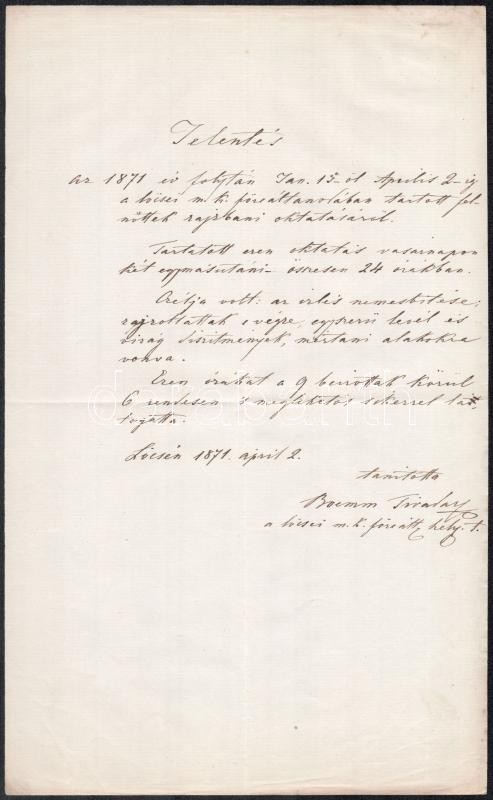 Jelentés
az 1871 év folytán Jan. 15-től Aprilis 2-ig
a lőcsei m. k. főreáltanodában tartott fel-
nőttek rajzbani oktatásáról.
Tartatott ezen oktatás vasárnapon
két egymásutáni – összesen 24 órákban.
Czélja volt: az izlés nemesbitése;
rajzoltattak e végre, egyszerű levél és
virág díszitmények, mértani alakokra
vonva.
Ezen órákat a 9 beirottak közül
6 rendesen is meglehetős sikerrel lát-
togatta.
Lőcsén 1871. april 2.
tanitotta
Boemm Tivadar
a lőcsei m. k. főreált. hely. t.